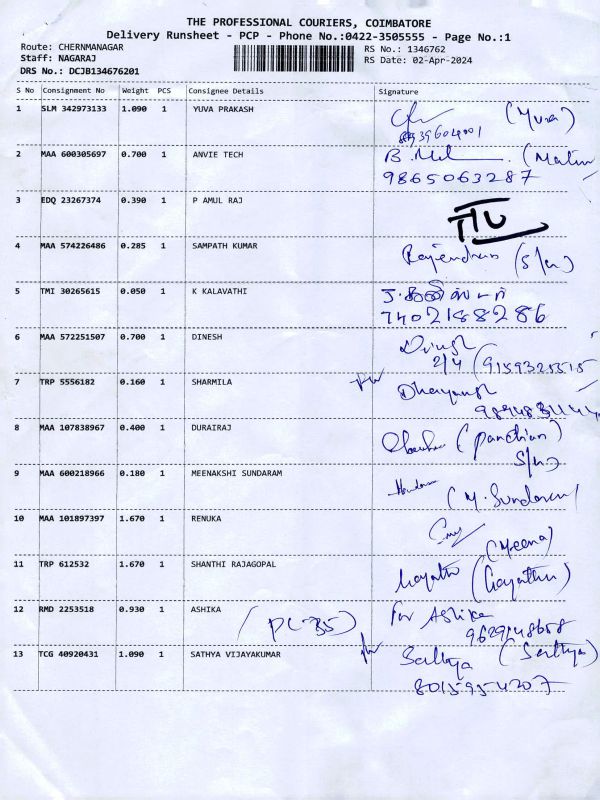 THE PROFESSIONAL COURIERS, COIMBATORE
Delivery Runsheet - PCP - Phone No.:0422-3505555 - Page No.:1
Route: CHERNMANAGAR RS No.: 1346762
Staff: NAGARAJ RS Date: 02-Apr-2024
DRS No.: DCJB134676201
S No Consignment No Weight PCS Consignee Details Signature
1 SLM 342973133 1.090 1 YUVA PRAKASH (Yuva)
2 MAA 600305697 0.700 1 ANVIE TECH B.
9865063287
3 EDQ 23267374 0.390 1 P AMUL RAJ
4 MAA 574226486 0.285 1 SAMPATH KUMAR Rajendran
5 TMI 30265615 0.050 1 K KALAVATHI
7402188286
6 MAA 572251507 0.700 1 DINESH Dinesh
2/4 (9159325515
7 TRP 5556182 0.160 1 SHARMILA
8 MAA 107838967 0.400 1 DURAIRAJ (Pandian)
9 MAA 600218966 0.180 1 MEENAKSHI SUNDARAM
(M. Sundaram)
10 MAA 101897397 1.670 1 RENUKA
(Meena)
11 TRP 612532 1.670 1 SHANTHI RAJAGOPAL Gayathri (Gayathri)
12 RMD 2253518 0.930 1 ASHIKA For Ashika
(PC-35)
13 TCG 40920431 1.090 1 SATHYA VIJAYAKUMAR Sathya (Sathya)
8015954207